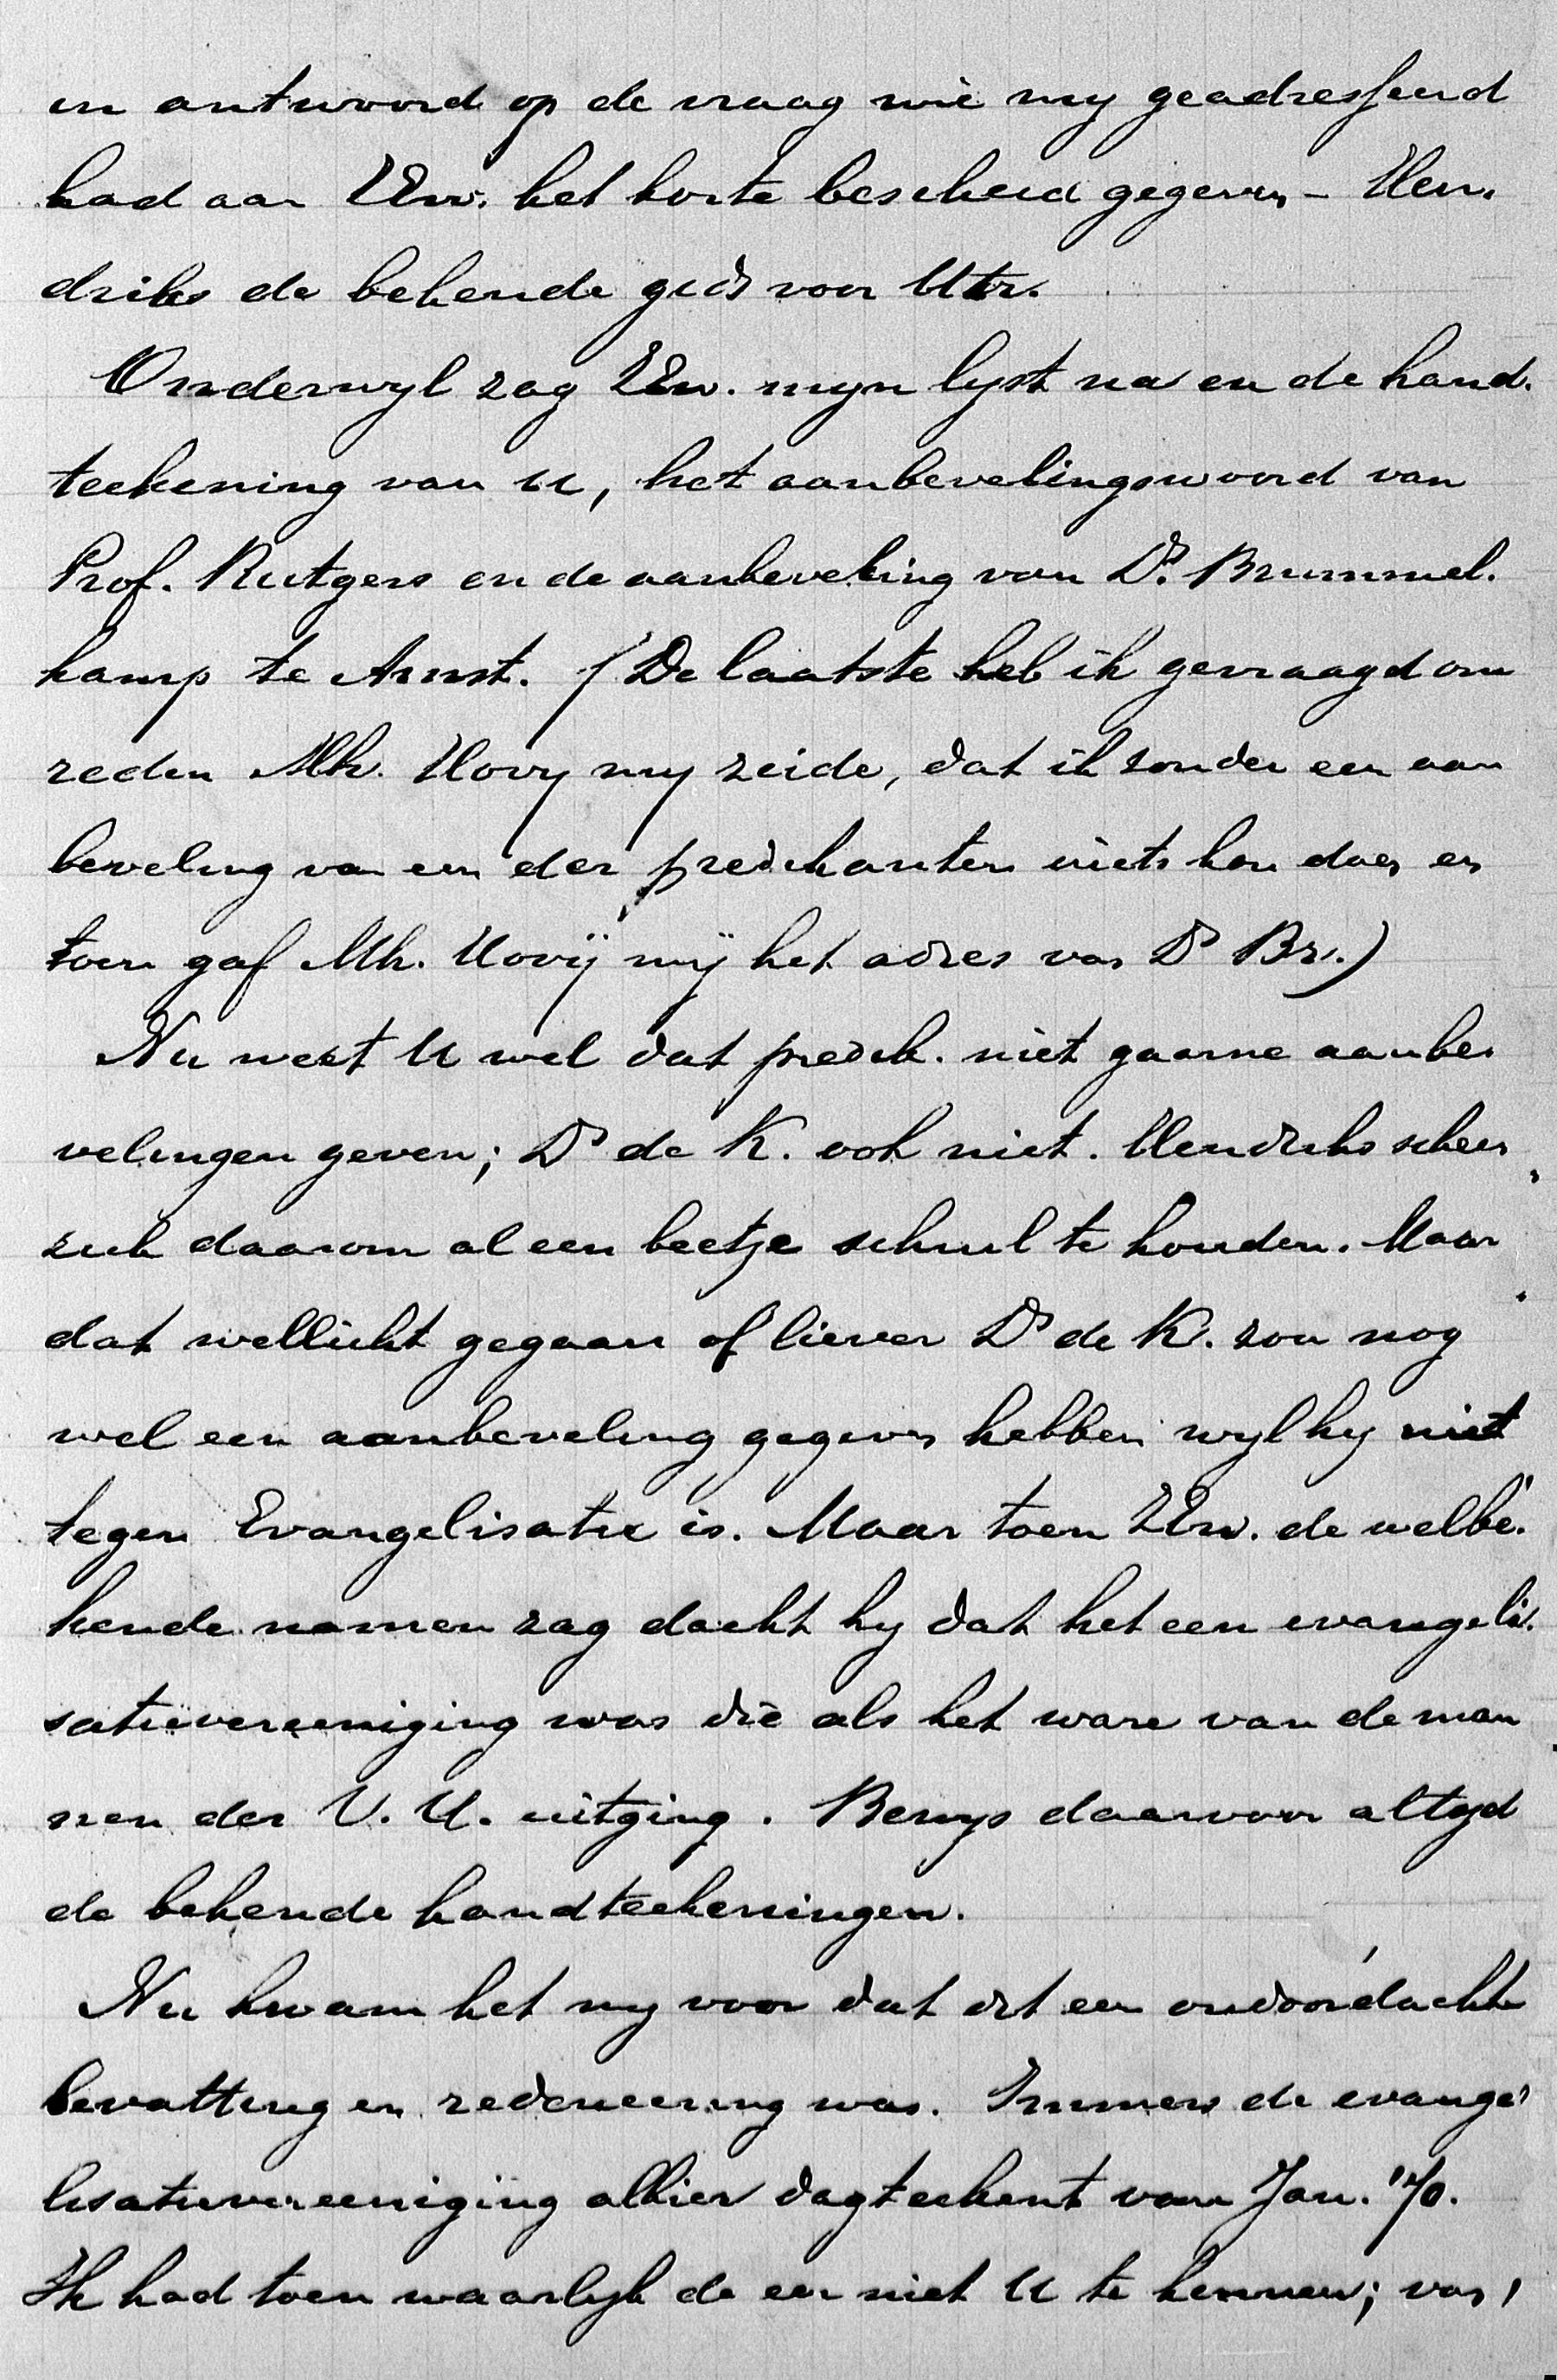 in antwoord op de vraag wie my geadresseerd
had aan ZEw. het korte bescheid gegeven – Hen-
driks de bekende gids voor Utr.
Onderwyl zag ZEw. myn lyst na en de hand-
teekening van U, het aanbevelingswoord van
Prof. Rutgers en de aanbeveling van Ds. Brummel-
kamp te Amst. (De laatste heb ik gevraagd om
reden Mh. Hovy my zeide, dat ik zonder een aan
beveling van een der predikanten niets kon doen en
toen gaf Mh. Hovÿ mÿ het adres van Ds Br.)
Nu weet U wel dat predik. niet gaarne aanbe-
velingen geven; Ds de K. ook niet. Hendriks scheen
zich daarom al een beetje schuil te houden. Maar
dat wellicht gegaan of liever Ds de K. zou nog
wel een aanbeveling gegeven hebben wyl hy niet
tegen Evangelisatie is. Maar toen ZEw. de welbe-
kende namen zag dacht hy dat het een evangeli-
satievereeniging was die als het ware van de man
nen der V. U. uitging. Bewys daarvoor altyd
de bekende handteekeningen.
Nu kwam het my voor dat dit een ondoordachte
bevatting en redeneering was. Immers de evange-
lisatievereeniging alhier dagteekent van Jan. '70.
Ik had toen waarlyk de eer niet U te kennen; van,